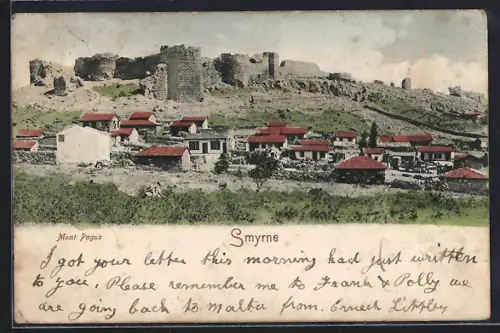 Mont Pagus
Smyrne
I got your letter this morning had just written
to you. Please remember me to Frank & Polly we
are going back to malta from. Ernest Littley